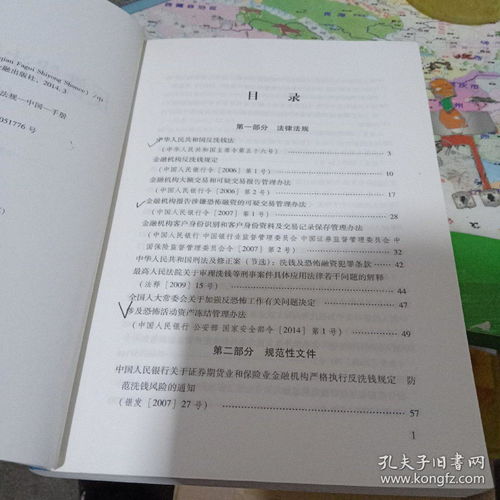 qian Fagui Shiyong Shouce) /中
金融出版社, 2014.3
法规—中国—手册
051776 号
目 录
第一部分 法律法规
中华人民共和国反洗钱法
(中华人民共和国主席令第五十六号) 3
金融机构反洗钱规定
(中国人民银行令 [2006] 第 1 号) 10
金融机构大额交易和可疑交易报告管理办法
(中国人民银行令 [2006] 第 2 号) 17
金融机构报告涉嫌恐怖融资的可疑交易管理办法
(中国人民银行令 [2007] 第 1 号) 28
金融机构客户身份识别和客户身份资料及交易记录保存管理办法
(中国人民银行 中国银行业监督管理委员会 中国证券监督管理委员会 中
国保险监督管理委员会令 [2007] 第 2 号) 32
中华人民共和国刑法及修正案 (节选): 洗钱及恐怖融资犯罪条款 42
最高人民法院关于审理洗钱等刑事案件具体应用法律若干问题的解释
(法释 [2009] 15 号) 44
全国人大常委会关于加强反恐怖工作有关问题决定 47
涉及恐怖活动资产冻结管理办法
(中国人民银行 公安部 国家安全部令 [2014] 第 1 号) 49
第二部分 规范性文件
中国人民银行关于证券期货业和保险业金融机构严格执行反洗钱规定 防
范洗钱风险的通知
(银发 [2007] 27 号) 57
1
孔夫子旧书网
www.kongfz.com